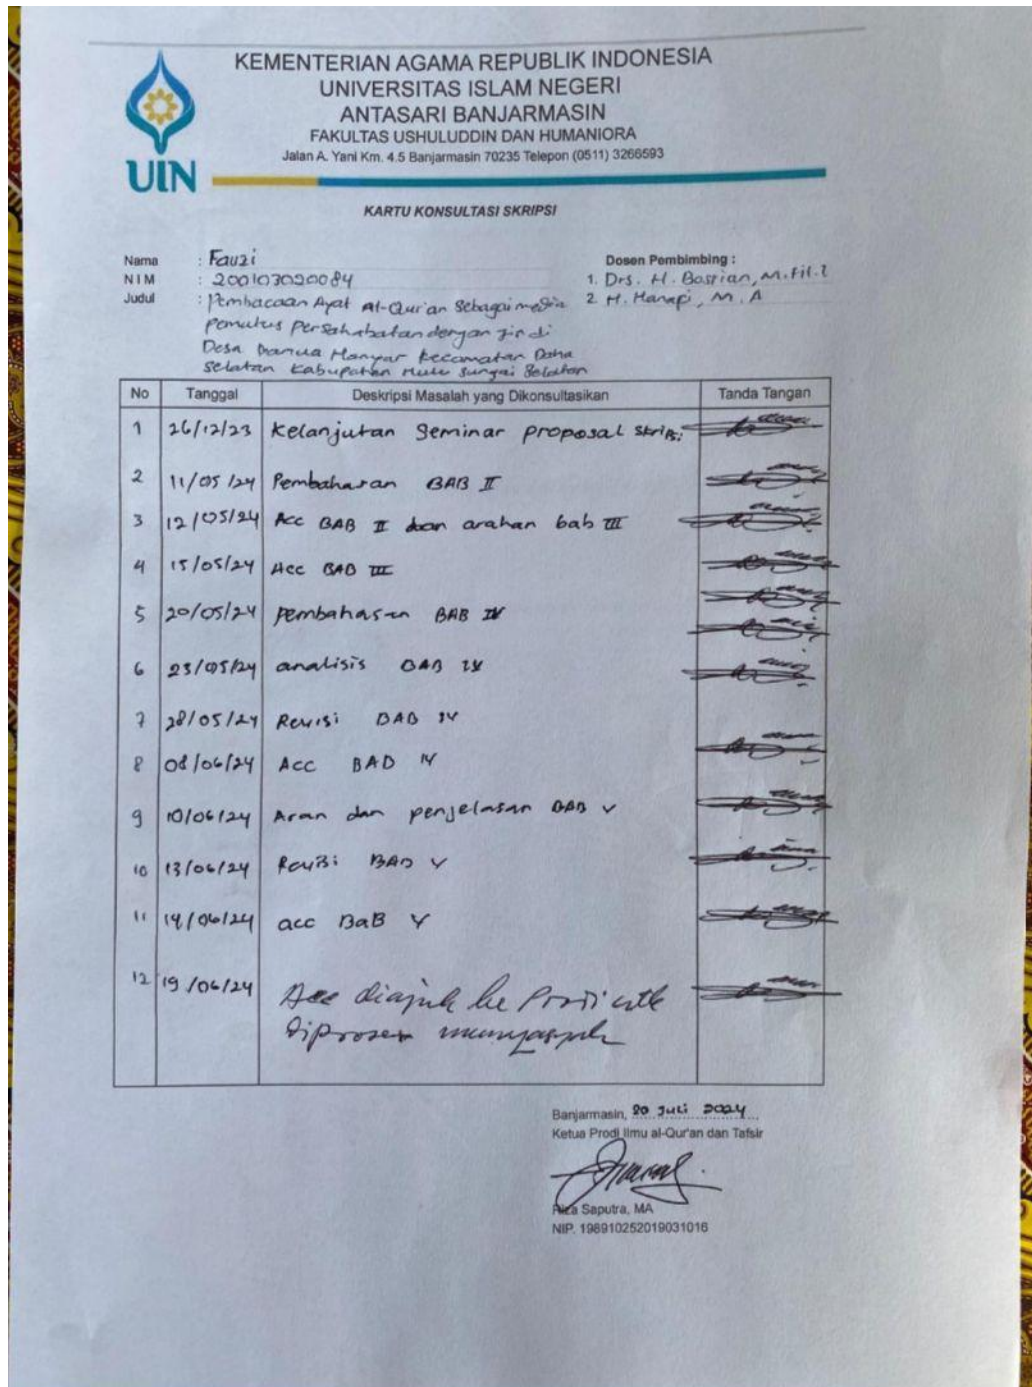 KEMENTERIAN AGAMA REPUBLIK INDONESIA
UNIVERSITAS ISLAM NEGERI
ANTASARI BANJARMASIN
FAKULTAS USHULUDDIN DAN HUMANIORA
Jalan A. Yani Km. 4.5 Banjarmasin 70235 Telepon (0511) 3266593
UIN
KARTU KONSULTASI SKRIPSI
Nama : Fauzi
NIM : 200103020084
Judul : Pembacaan Ayat Al-Qur'an Sebagai media
pemutus Persahabatan dengan jin di
Desa Banua Hanyar Kecamatan Daha
Selatan Kabupaten Hulu Sungai Selatan
Dosen Pembimbing :
1. Drs. H. Basrian, M.Fil.I
2. H. Hanapi, M.A
No Tanggal Deskripsi Masalah yang Dikonsultasikan Tanda Tangan
1 26/12/23 Kelanjutan Seminar proposal skripsi
2 11/05/24 Pembahasan BAB II
3 12/05/24 Acc BAB II dan arahan bab III
4 15/05/24 Acc BAB III
5 20/05/24 pembahasan BAB IV
6 23/05/24 analisis BAB IV
7 28/05/24 Revisi BAB IV
8 08/06/24 Acc BAB IV
9 10/06/24 Aran dan penjelasan BAB V
10 13/06/24 Revisi BAB V
11 14/06/24 acc BaB V
12 19/06/24 Acc diajuk ke Prodi utk
diproses munaqasyah
Banjarmasin, 20 Juli 2024
Ketua Prodi Ilmu al-Qur'an dan Tafsir
Riza Saputra, MA
NIP. 198910252019031016